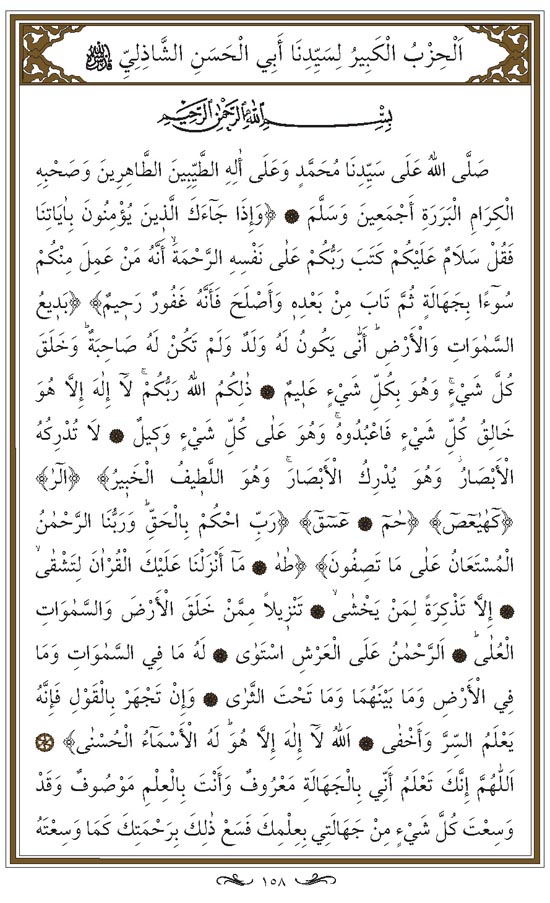 اَلْحِزْبُ الْكَبِيرُ لِسَيِّدِنَا أَبِي الْحَسَنِ الشَّاذِلِيِّ
بِسْمِ اللهِ الرَّحْمٰنِ الرَّحِيمِ
صَلَّى اللهُ عَلَى سَيِّدِنَا مُحَمَّدٍ وَعَلَى أٰلِهِ الطَّيِّبِينَ الطَّاهِرِينَ وَصَحْبِهِ
الْكِرَامِ الْبَرَرَةِ أَجْمَعِينَ وَسَلَّمَ ۞ ﴿وَإِذَا جَاءَكَ الَّذِينَ يُؤْمِنُونَ بِاٰيَاتِنَا
فَقُلْ سَلَامٌ عَلَيْكُمْ كَتَبَ رَبُّكُمْ عَلٰى نَفْسِهِ الرَّحْمَةَۙ أَنَّهُ مَنْ عَمِلَ مِنْكُمْ
سُوءًا بِجَهَالَةٍ ثُمَّ تَابَ مِنْ بَعْدِهِ وَأَصْلَحَ فَأَنَّهُ غَفُورٌ رَحِيمٌ﴾ ﴿بَدِيعُ
السَّمٰوَاتِ وَالْأَرْضِۜ أَنّٰى يَكُونُ لَهُ وَلَدٌ وَلَمْ تَكُنْ لَهُ صَاحِبَةٌۜ وَخَلَقَ
كُلَّ شَيْءٍۚ وَهُوَ بِكُلِّ شَيْءٍ عَلِيمٌ ۞ ذٰلِكُمُ اللهُ رَبُّكُمْۚ لَآ إِلٰهَ إِلَّا هُوَ
خَالِقُ كُلِّ شَيْءٍ فَاعْبُدُوهُۚ وَهُوَ عَلٰى كُلِّ شَيْءٍ وَكِيلٌ ۞ لَا تُدْرِكُهُ
الْأَبْصَارُۘ وَهُوَ يُدْرِكُ الْأَبْصَارَۚ وَهُوَ اللَّطِيفُ الْخَبِيرُ﴾ ﴿الٓرٰ﴾
﴿كٓهٰيٰعٓصٓ﴾ ﴿حٰمٓ ۞ عٓسٓقٓ﴾ ﴿رَبِّ احْكُمْ بِالْحَقِّۜ وَرَبُّنَا الرَّحْمٰنُ
الْمُسْتَعَانُ عَلٰى مَا تَصِفُونَ﴾ ﴿طٰهٰ ۞ مَآ أَنْزَلْنَا عَلَيْكَ الْقُرْاٰنَ لِتَشْقٰىۙ
۞ إِلَّا تَذْكِرَةً لِمَنْ يَخْشٰىۙ ۞ تَنْزِيلاً مِمَّنْ خَلَقَ الْأَرْضَ وَالسَّمٰوَاتِ
الْعُلٰىۜ ۞ اَلرَّحْمٰنُ عَلَى الْعَرْشِ اسْتَوٰى ۞ لَهُ مَا فِي السَّمٰوَاتِ وَمَا
فِي الْأَرْضِ وَمَا بَيْنَهُمَا وَمَا تَحْتَ الثَّرٰى ۞ وَإِنْ تَجْهَرْ بِالْقَوْلِ فَإِنَّهُ
يَعْلَمُ السِّرَّ وَأَخْفٰى ۞ اَللهُ لَآ إِلٰهَ إِلَّا هُوَۜ لَهُ الْأَسْمَآءُ الْحُسْنٰى﴾ ۞
اَللّٰهُمَّ إِنَّكَ تَعْلَمُ أَنِّي بِالْجَهَالَةِ مَعْرُوفٌ وَأَنْتَ بِالْعِلْمِ مَوْصُوفٌ وَقَدْ
وَسِعْتَ كُلَّ شَيْءٍ مِنْ جَهَالَتِي بِعِلْمِكَ فَسَعْ ذٰلِكَ بِرَحْمَتِكَ كَمَا وَسِعْتَهُ
١٥٨